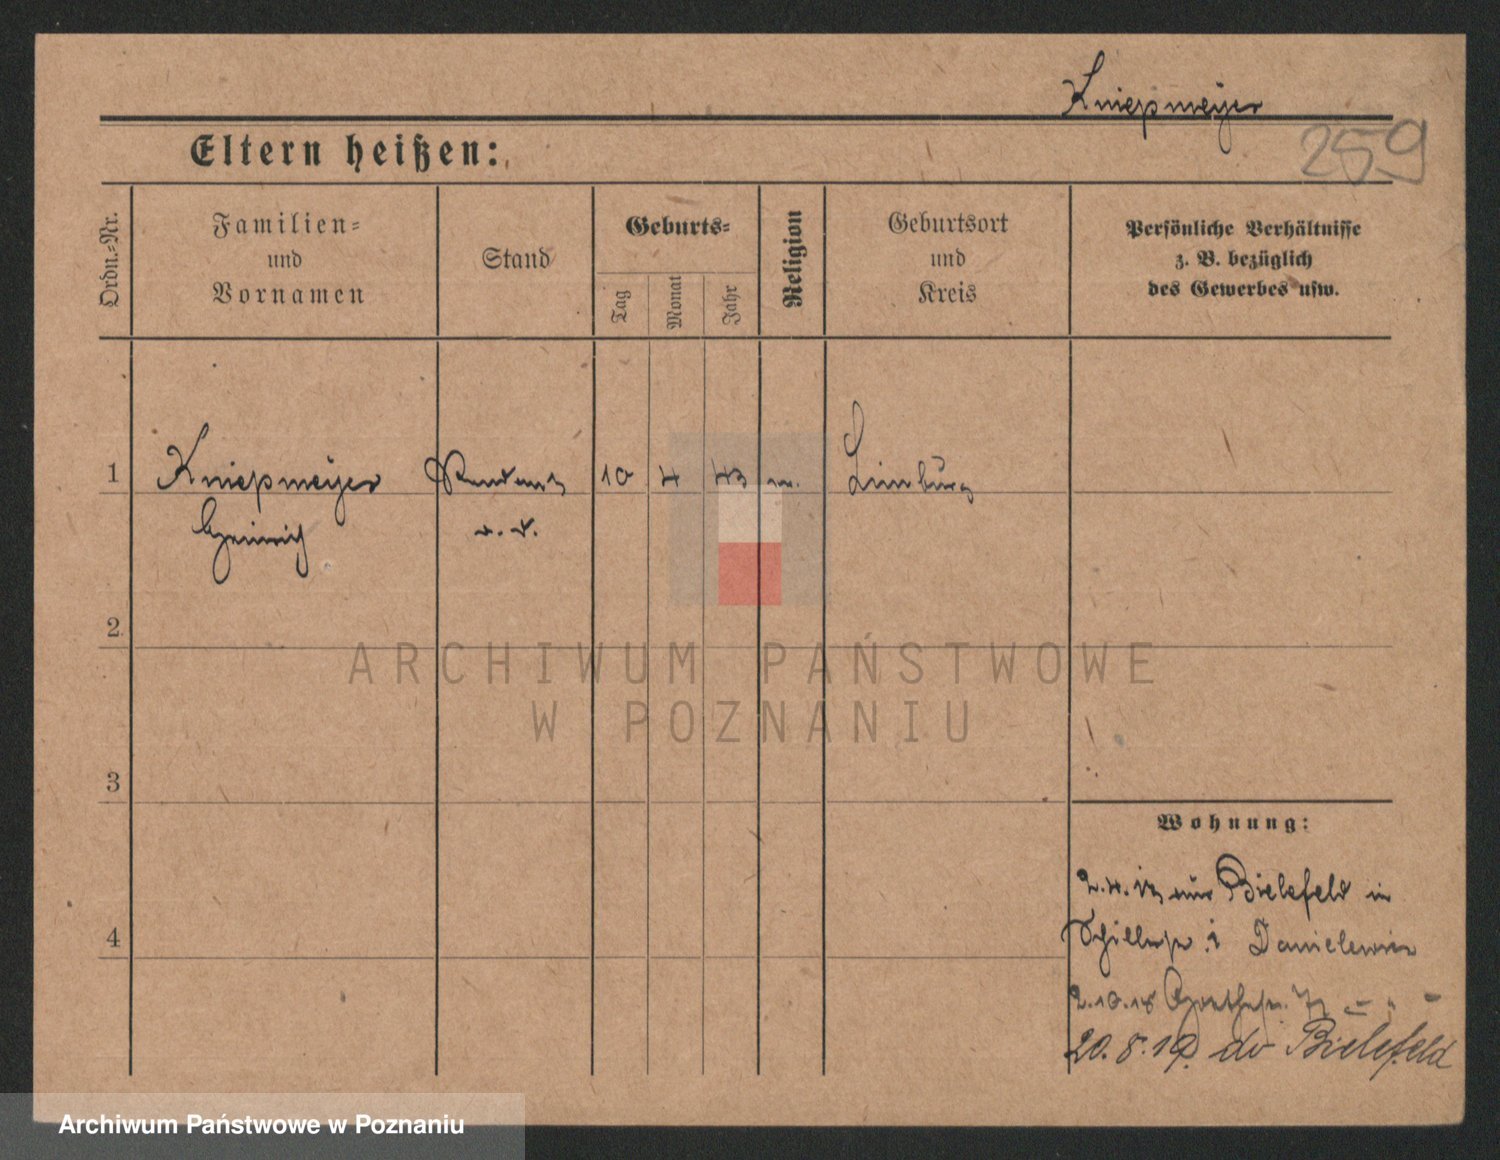 Kniepmeyer
259
Eltern heißen:
Ordn.-Nr.
Familien-
und
Vornamen
Stand
Geburts-
Tag
Monat
Jahr
Religion
Geburtsort
und
Kreis
Persönliche Verhältnisse
z. B. bezüglich
des Gewerbes usw.
1
Kniepmeyer
10 4 43
Limburg
Heinrich
2
3
4
Wohnung:
Bielefeld in
Danielewicz
2.10.18
20.8.19. Bielefeld
ARCHIWUM PAŃSTWOWE
W POZNANIU
Archiwum Państwowe w Poznaniu